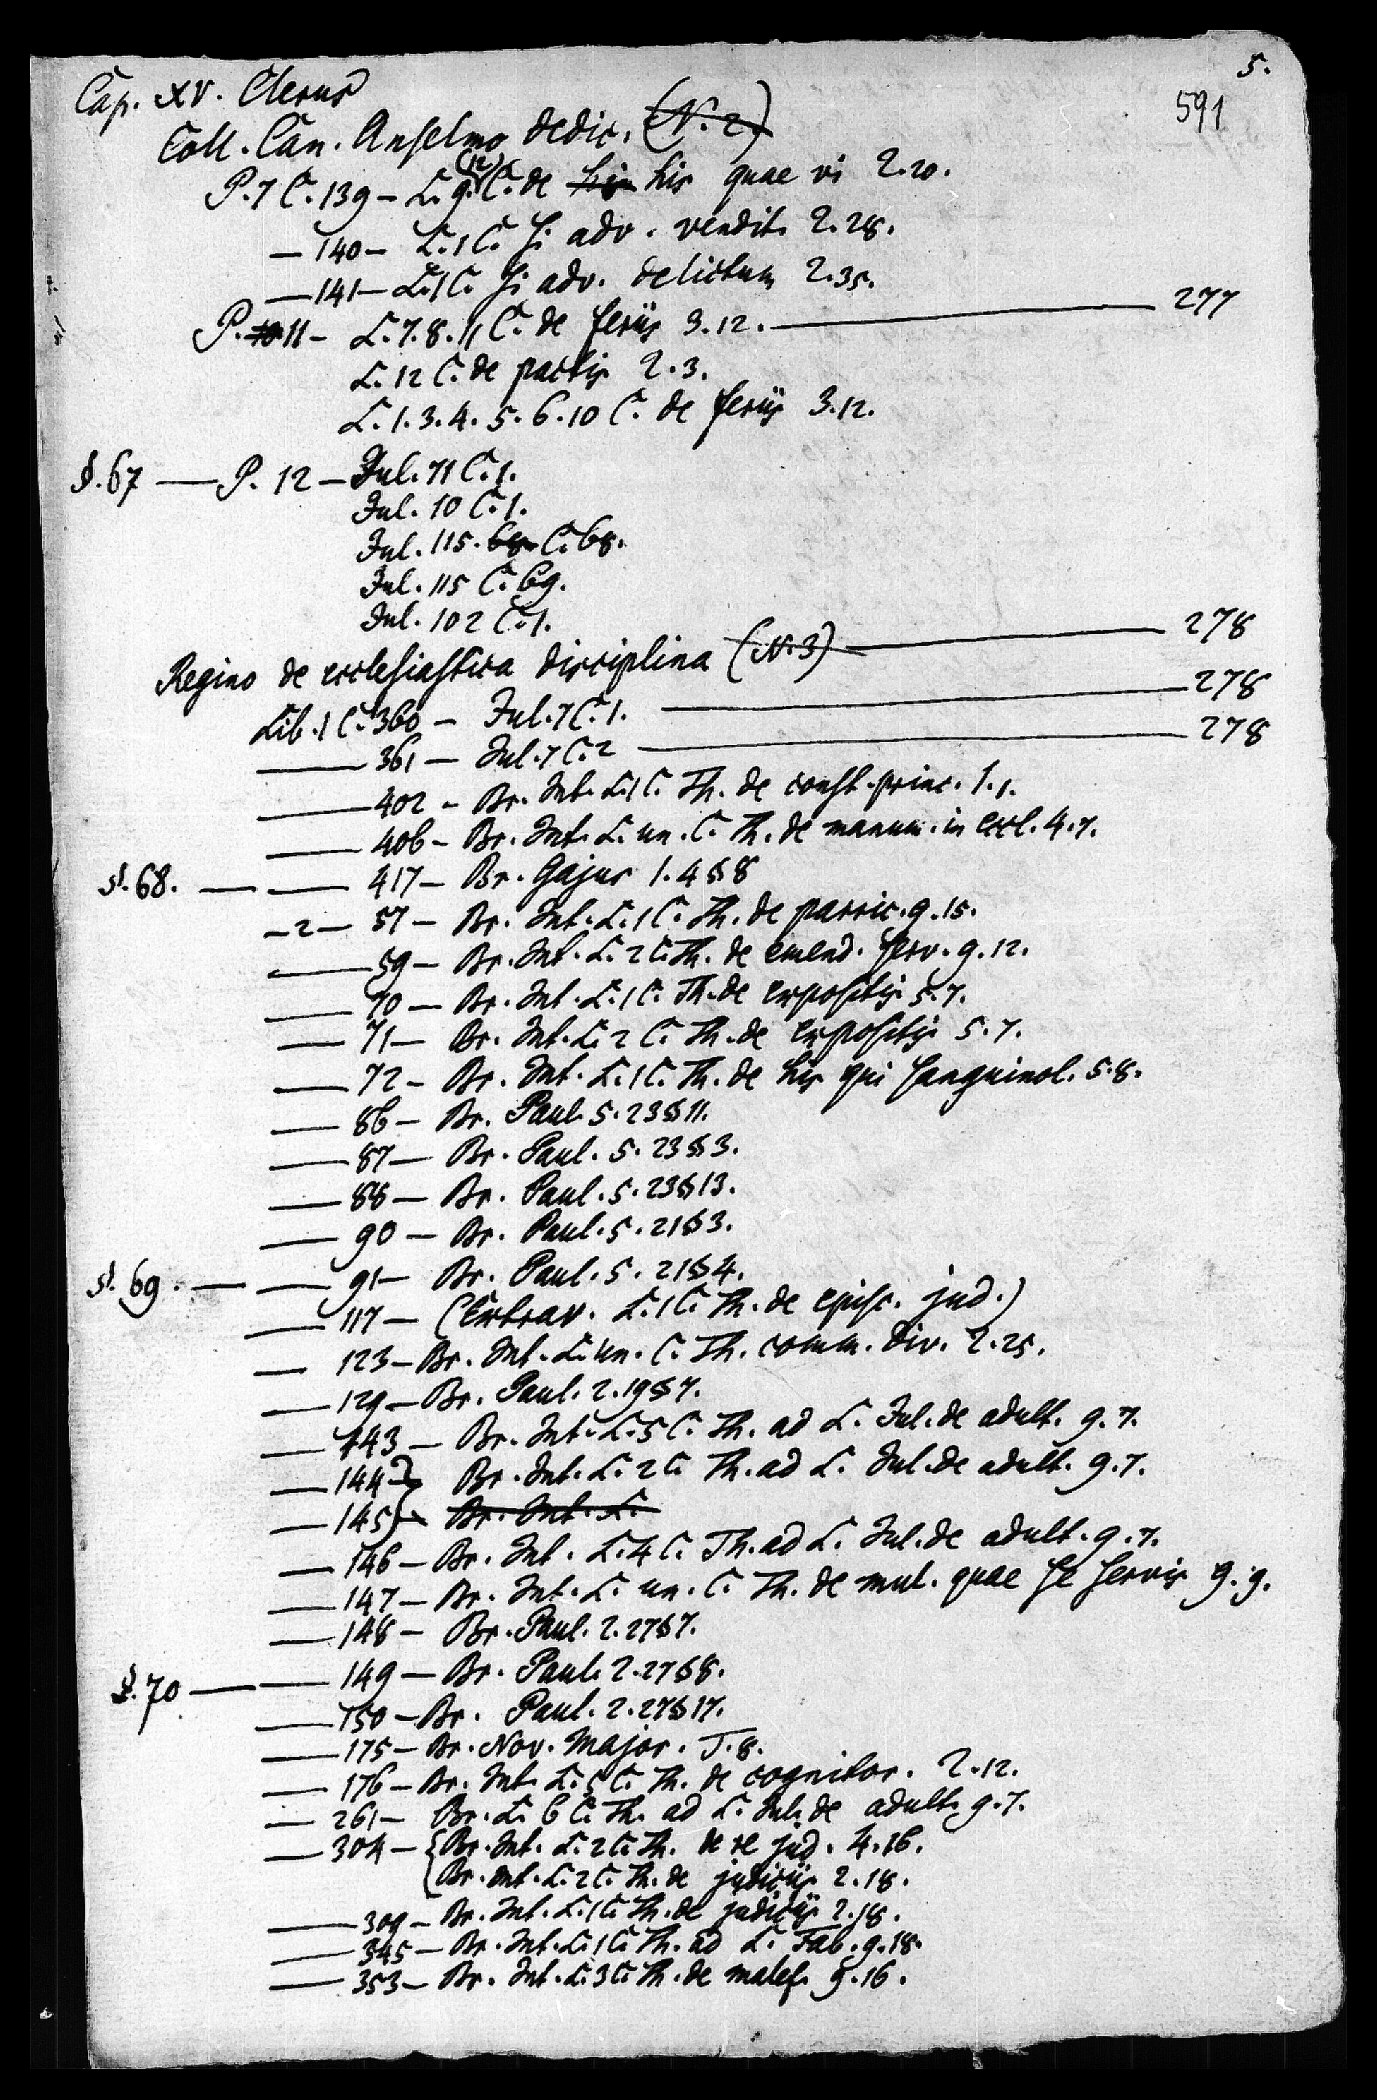 5.
591
Cap. XV. Clerus
Coll. Can. Anselmo dedic. (N. 2)
P. 7 C. 139 – L. 9. (12) C. de his his quae vi 2.20.
– 140 – L. 1 C. si adv. vendit. 2.28.
– 141 – L. 1 C. si adv. delictum 2.35.
P. 10 11 – L. 7. 8. 11 C. de feriis 3.12. — 277
L. 12 C. de pactis 2.3.
L. 1. 3. 4. 5. 6. 10 C. de feriis 3.12.
§. 67 — P. 12 – Jul. 71 C. 1.
Jul. 10 C. 1.
Jul. 115. 68 C. 68.
Jul. 115 C. 69.
Jul. 102 C. 1.
Regino de ecclesiastica disciplina (N. 3) — 278
Lib. 1 C. 360 – Jul. 7 C. 1. — 278
— 361 – Jul. 7 C. 2 — 278
— 402 – Br. Int. L. 1 C. Th. de const. princ. 1.1.
— 406 – Br. Int. L. un. C. Th. de manum. in eccl. 4.7.
§. 68. — — 417 – Br. Gajus 1.4 § 8
– 2 – 57 – Br. Int. L. 1 C. Th. de parric. 9.15.
— 59 – Br. Int. L. 2 C. Th. de emend. serv. 9.12.
— 70 – Br. Int. L. 1 C. Th. de expositis 5.7.
— 71 – Br. Int. L. 2 C. Th. de expositis 5.7.
— 72 – Br. Int. L. 1 C. Th. de his qui sanguinol. 5.8.
— 86 – Br. Paul. 5.23 § 11.
— 87 – Br. Paul. 5.23 § 3.
— 88 – Br. Paul. 5.23 § 13.
— 90 – Br. Paul. 5.21 § 3.
§. 69. — — 91 – Br. Paul. 5.21 § 4.
— 117 – (Extrav. L. 1 C. Th. de episc. jud.)
— 123 – Br. Int. L. un. C. Th. comm. div. 2.25.
— 129 – Br. Paul. 2.19 § 7.
— 143 – Br. Int. L. 5 C. Th. ad L. Jul. de adult. 9.7.
— 144 } Br. Int. L. 2 C. Th. ad L. Jul. de adult. 9.7.
— 145 } Br. Int. L.
— 146 – Br. Int. L. 4 C. Th. ad L. Jul. de adult. 9.7.
— 147 – Br. Int. L. un. C. Th. de mul. quae se servis 9.9.
— 148 – Br. Paul. 2.27 § 7.
§. 70 — — 149 – Br. Paul. 2.27 § 8.
— 150 – Br. Paul. 2.27 § 17.
— 175 – Br. Nov. Major. T. 8.
— 176 – Br. Int. L. 5 C. Th. de cognitor. 2.12.
— 261 – Br. L. 6 C. Th. ad L. Jul. de adult. 9.7.
— 304 – { Br. Int. L. 2 C. Th. de re jud. 4.16.
{ Br. Int. L. 2 C. Th. de judiciis 2.18.
— 309 – Br. Int. L. 1 C. Th. de judiciis 2.18.
— 345 – Br. Int. L. 1 C. Th. ad L. Fab. 9.18.
— 353 – Br. Int. L. 3 C. Th. de malef. 9.16.